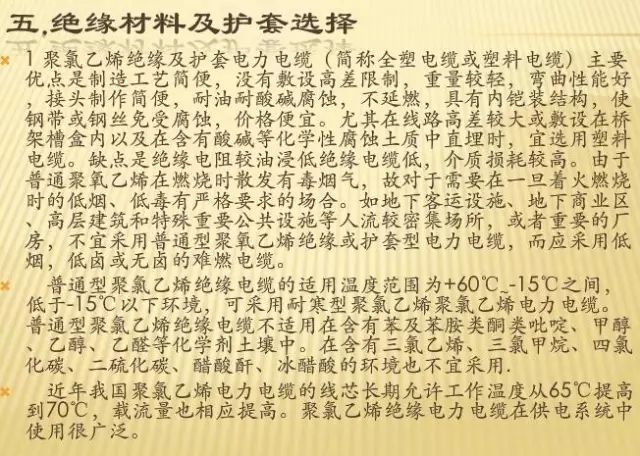 五.绝缘材料及护套选择
1 聚氯乙烯绝缘及护套电力电缆（简称全塑电缆或塑料电缆）主要
优点是制造工艺简便，没有敷设高差限制，重量较轻，弯曲性能好
，接头制作简便，耐油耐酸碱腐蚀，不延燃，具有内铠装结构，使
钢带或钢丝免受腐蚀，价格便宜。尤其在线路高差较大或敷设在桥
架槽盒内以及在含有酸碱等化学性腐蚀土质中直埋时，宜选用塑料
电缆。缺点是绝缘电阻较油浸低绝缘电缆低，介质损耗较高。由于
普通聚氧乙烯在燃烧时散发有毒烟气，故对于需要在一旦着火燃烧
时的低烟、低毒有严格要求的场合。如地下客运设施、地下商业区
、高层建筑和特殊重要公共设施等人流较密集场所，或者重要的厂
房，不宜采用普通型聚氧乙烯绝缘或护套型电力电缆，而应采用低
烟，低卤或无卤的难燃电缆。
普通型聚氯乙烯绝缘电缆的适用温度范围为+60℃_-15℃之间，
低于-15℃以下环境，可采用耐寒型聚氯乙烯聚氯乙烯电力电缆。
普通型聚氯乙烯绝缘电缆不适用在含有苯及苯胺类酮类吡啶、甲醇
、乙醇、乙醛等化学剂土壤中。在含有三氯乙烯、三氯甲烷、四氯
化碳、二硫化碳、醋酸酐、冰醋酸的环境也不宜采用.
近年我国聚氯乙烯电力电缆的线芯长期允许工作温度从65℃提高
到70℃，载流量也相应提高。聚氯乙烯绝缘电力电缆在供电系统中
使用很广泛。